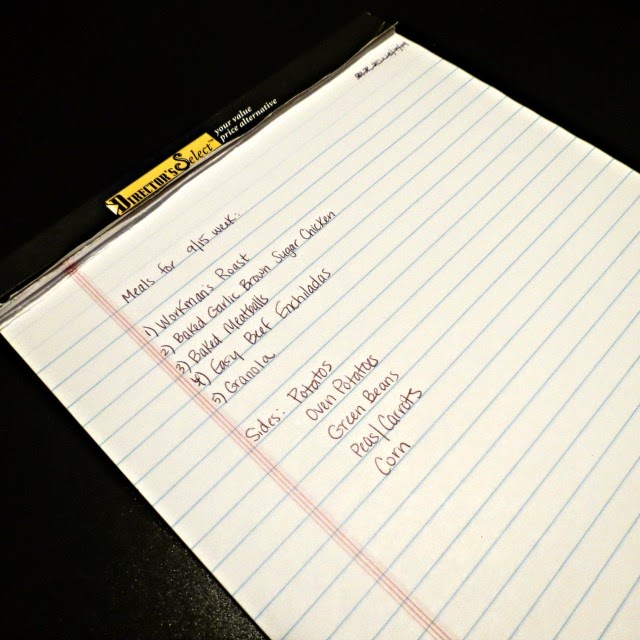 DIRECTOR'S SELECT™
your value
price alternative
Meals for 9/15 week:
1) Workman's Roast
2) Baked Garlic Brown Sugar Chicken
3) Baked Meatballs
4) Easy Beef Enchiladas
5) Granola
Sides: Potatos
Oven Potatos
Green Beans
Peas/Carrots
Corn